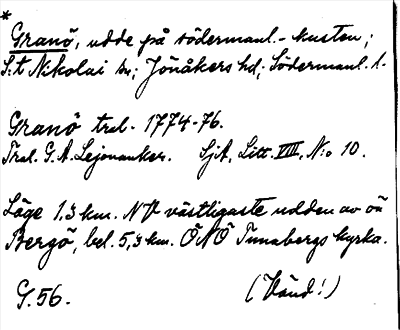 *
Granö, udde på södermanl.-kusten;
S:t Nikolai sn; Jönåkers hd; Södermanl. l.
Granö trol. 1774-76.
Trol. G. A. Lejonanker. SjA, Litt. VIII, N:o 10.
Läge 1,3 km. NV västligaste udden av ön
Bergö, bel. 5,3 km. ÖNÖ Tunabergs kyrka.
G. 56. (Vänd!)